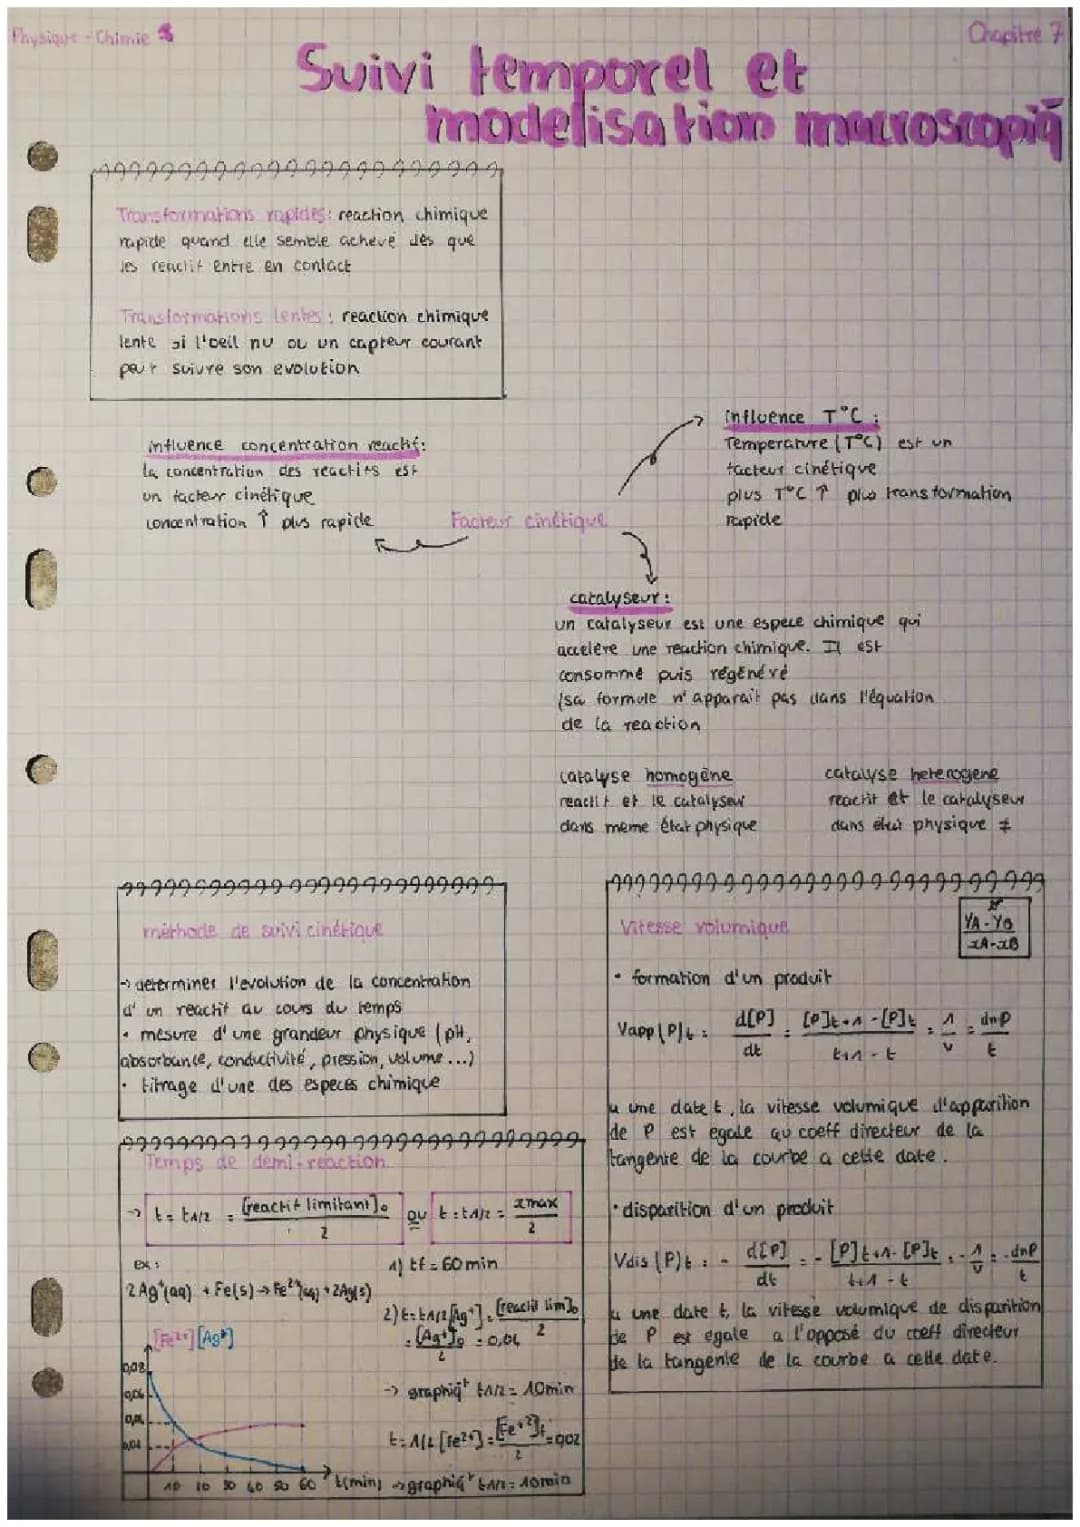 Physique - Chimie
Chapitre 7
Suivi temporel et
modelisation macroscopiq
Transformations rapides: reaction chimique
rapide quand elle semble acheve dès que
les reactif entre en contact
Transformations lentes: reaction chimique
lente si l'oeil nu ou un capteur courant
peut suivre son evolution
influence concentration reactif:
la concentration des reactifs est
un facteur cinétique
concentration ↑ plus rapide
Facteur cinétique
influence T°C :
Temperature (T°C) est un
facteur cinétique
plus T°C ↑ plus transformation
rapide
catalyseur:
un catalyseur est une espece chimique qui
accelère une reaction chimique. Il est
consommé puis régénéré
(sa formule n'apparait pas dans l'équation
de la reaction
catalyse homogène
reactif et le catalyseur
dans meme état physique
catalyse heterogene
reactif et le catalyseur
dans état physique ≠
méthode de suivi cinétique
-> determiner l'evolution de la concentration
d'un reactif au cours du temps
• mesure d'une grandeur physique (pH,
absorbance, conductivité, pression, volume...)
• titrage d'une des especes chimique
Vitesse volumique
YA - YB
xA - xB
• formation d'un produit
Vapp(P)t = d[P]/dt = [P]t+1 - [P]t / t+1 - t = 1/v = dnp/t
a une date t, la vitesse volumique d'apparition
de P est egale au coeff directeur de la
tangente de la courbe a cette date.
• disparition d'un produit
Vdis(P)t = - d[P]/dt = - [P]t+1 - [P]t / t+1 - t = - 1/v = - dnP/t
a une date t, la vitesse volumique de disparition
de P est egale a l'opposé du coeff directeur
de la tangente de la courbe a cette date.
Temps de demi-reaction
-> t = t1/2 = [reactif limitant]o / 2 ou t = t1/2 = xmax / 2
ex:
2Ag+(aq) + Fe(s) -> Fe2+(aq) + 2Ag(s)
[Fe2+] [Ag+]
0,08
0,06
0,04
10
50
60
t(min)
1) tf = 60min
2) t = t1/2 [Ag+] = [reactif lim]o / 2
= [Ag+]o / 2 = 0,04
-> graphiqt t1/2 = 10min
t = 1/2 [Fe2+] = [Fe+2]f / 2 = 0,02
-> graphiqt t1/2 = 10min